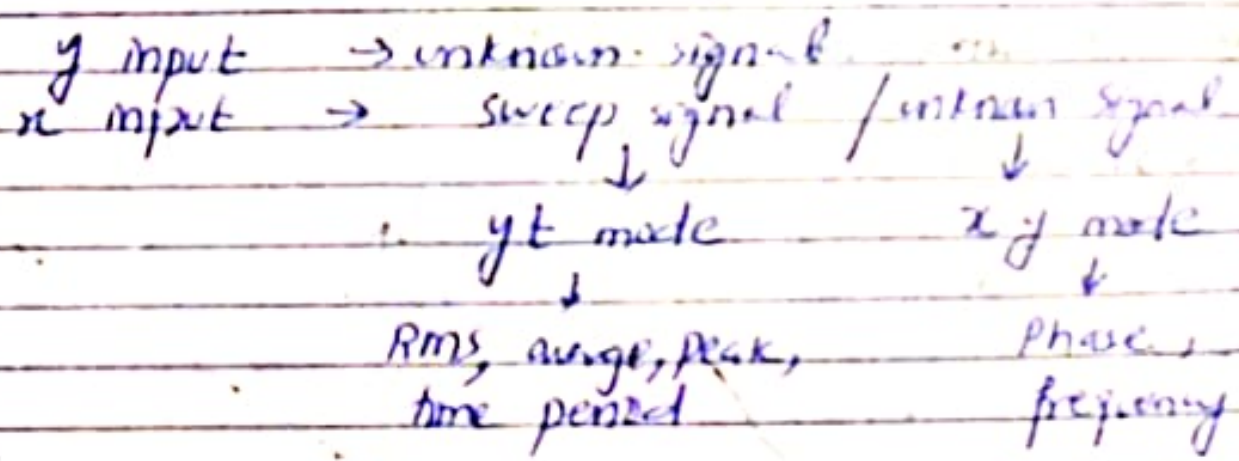 y input → unknown signal
x input → sweep signal / unknown signal
↓ ↓
yt mode xy mode
↓ ↓
Rms, average, peak, Phase,
time period frequency